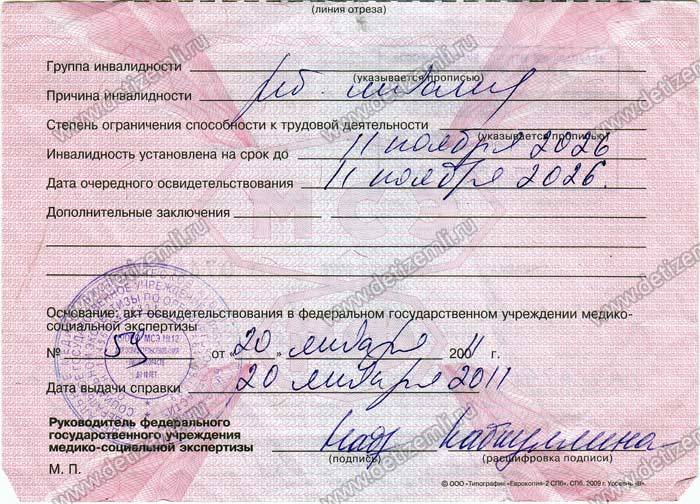 (линия отреза)
Группа инвалидности
(указывается прописью)
Причина инвалидности инвалид
Степень ограничения способности к трудовой деятельности
(указывается прописью)
Инвалидность установлена на срок до 11 ноября 2026
Дата очередного освидетельствования 11 ноября 2026.
Дополнительные заключения
МСЭ
Основание: акт освидетельствования в федеральном государственном учреждении медико-
социальной экспертизы
№ 59 от «20» января 20011 г.
Дата выдачи справки 20 января 2011
Руководитель федерального
государственного учреждения
медико-социальной экспертизы
(подпись)
(расшифровка подписи)
М. П.
© ООО «Типография «Еврокопия-2 СПб», СПб, 2009 г. Уровень «В».
www.detizemli.ru